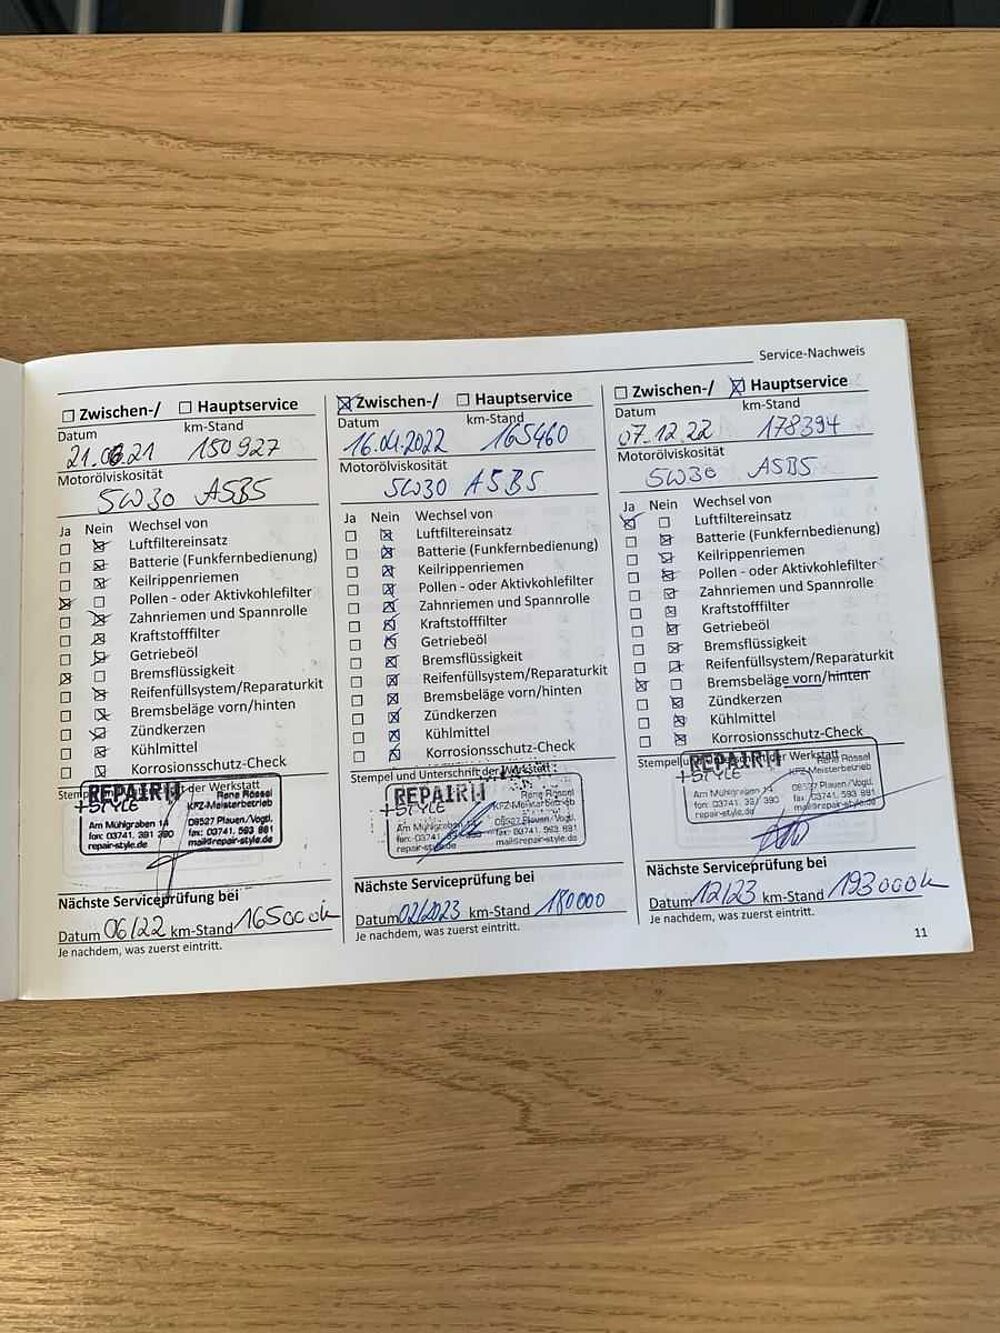 Service-Nachweis
Zwischen-/ Hauptservice
Datum km-Stand
21.06.21 150 927
Motorölviskosität
5W30 A5B5
Ja Nein Wechsel von
Luftfiltereinsatz
Batterie (Funkfernbedienung)
Keilrippenriemen
Pollen - oder Aktivkohlefilter
Zahnriemen und Spannrolle
Kraftstofffilter
Getriebeöl
Bremsflüssigkeit
Reifenfüllsystem/Reparaturkit
Bremsbeläge vorn/hinten
Zündkerzen
Kühlmittel
Korrosionsschutz-Check
der Werkstatt
REPAIR
+STYLE
Rene Rössel
KFZ-Meisterbetrieb
Am Mühlgraben 14
08527 Plauen/Vogtl.
fon: 03741. 391 390
fax: 03741. 593 881
repair-style.de
mail@repair-style.de
Nächste Serviceprüfung bei
Datum 06/22 km-Stand 165000k
Je nachdem, was zuerst eintritt.
Zwischen-/ Hauptservice
Datum km-Stand
16.04.2022 165460
Motorölviskosität
5W30 A5B5
Ja Nein Wechsel von
Luftfiltereinsatz
Batterie (Funkfernbedienung)
Keilrippenriemen
Pollen - oder Aktivkohlefilter
Zahnriemen und Spannrolle
Kraftstofffilter
Getriebeöl
Bremsflüssigkeit
Reifenfüllsystem/Reparaturkit
Bremsbeläge vorn/hinten
Zündkerzen
Kühlmittel
Korrosionsschutz-Check
Stempel und Unterschrift der Werkstatt
REPAIR
+STYLE
Rene Rössel
KFZ-Meisterbetrieb
Am Mühlgraben
08527 Plauen/Vogtl.
fon: 03741
fax: 03741. 593 881
repair-style.de
mail@repair-style.de
Nächste Serviceprüfung bei
Datum 02/2023 km-Stand 180000
Je nachdem, was zuerst eintritt.
Zwischen-/ Hauptservice
Datum km-Stand
07.12.22 178394
Motorölviskosität
5W30 A5B5
Ja Nein Wechsel von
Luftfiltereinsatz
Batterie (Funkfernbedienung)
Keilrippenriemen
Pollen - oder Aktivkohlefilter
Zahnriemen und Spannrolle
Kraftstofffilter
Getriebeöl
Bremsflüssigkeit
Reifenfüllsystem/Reparaturkit
Bremsbeläge vorn/hinten
Zündkerzen
Kühlmittel
Korrosionsschutz-Check
der Werkstatt
REPAIR
+STYLE
Rene Rössel
KFZ-Meisterbetrieb
Am Mühlgraben 14
08527 Plauen/Vogtl.
fon: 03741. 390
fax: 03741. 593 881
repair-style.de
mail@repair-style.de
Nächste Serviceprüfung bei
Datum 12/23 km-Stand 193000k
Je nachdem, was zuerst eintritt.
11